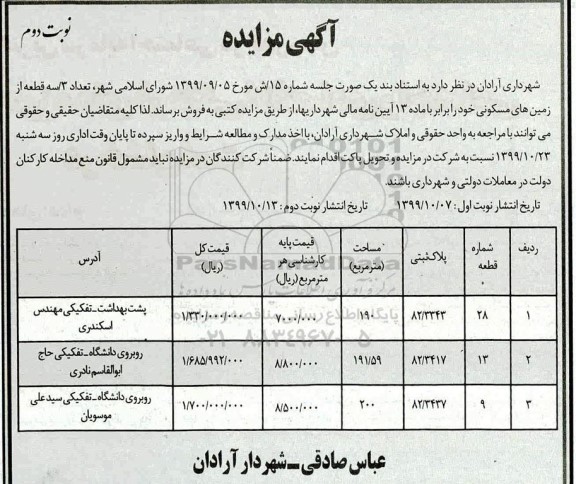 نوبت دوم
آگهی مزایده
شهرداری آرادان در نظر دارد به استناد بند یک صورت جلسه شماره ۱۵/ش مورخ ۱۳۹۹/۰۹/۰۵ شورای اسلامی شهر، تعداد ۳/سه قطعه از
زمین های مسکونی خود را برابر با ماده ۱۳ آیین نامه مالی شهرداریها، از طریق مزایده کتبی به فروش برساند. لذا کلیه متقاضیان حقیقی و حقوقی
می توانند با مراجعه به واحد حقوقی و املاک شهرداری آرادان، با اخذ مدارک و مطالعه شرایط و واریز سپرده تا پایان وقت اداری روز سه شنبه
۱۳۹۹/۱۰/۲۳ نسبت به شرکت در مزایده و تحویل پاکت اقدام نمایند. ضمنا شرکت کنندگان در مزایده نباید مشمول قانون منع مداخله کارکنان
دولت در معاملات دولتی و شهرداری باشند.
تاریخ انتشار نوبت اول: ۱۳۹۹/۱۰/۰۷ تاریخ انتشار نوبت دوم: ۱۳۹۹/۱۰/۱۳
ردیف شماره قطعه پلاک ثبتی مساحت (مترمربع) قیمت پایه کارشناسی هر مترمربع (ریال) قیمت کل (ریال) آدرس
۱ ۲۸ ۸۲/۳۳۴۳ ۱۹۰ ۷۰۰۰/۰۰۰ ۱/۳۳۰/۰۰۰/۰۰۰ پشت بهداشت ـ تفکیکی مهندس اسکندری
۲ ۱۳ ۸۲/۳۴۱۷ ۱۹۱/۵۹ ۸/۸۰۰/۰۰۰ ۱/۶۸۵/۹۹۲/۰۰۰ روبروی دانشگاه ـ تفکیکی حاج ابوالقاسم نادری
۳ ۹ ۸۲/۳۴۳۷ ۲۰۰ ۸/۵۰۰/۰۰۰ ۱/۷۰۰/۰۰۰/۰۰۰ روبروی دانشگاه ـ تفکیکی سید علی موسویان
عباس صادقی ـ شهردار آرادان
ParsNamadData
۰۲۱-۸۸۳۴۹۶۷۰-۵